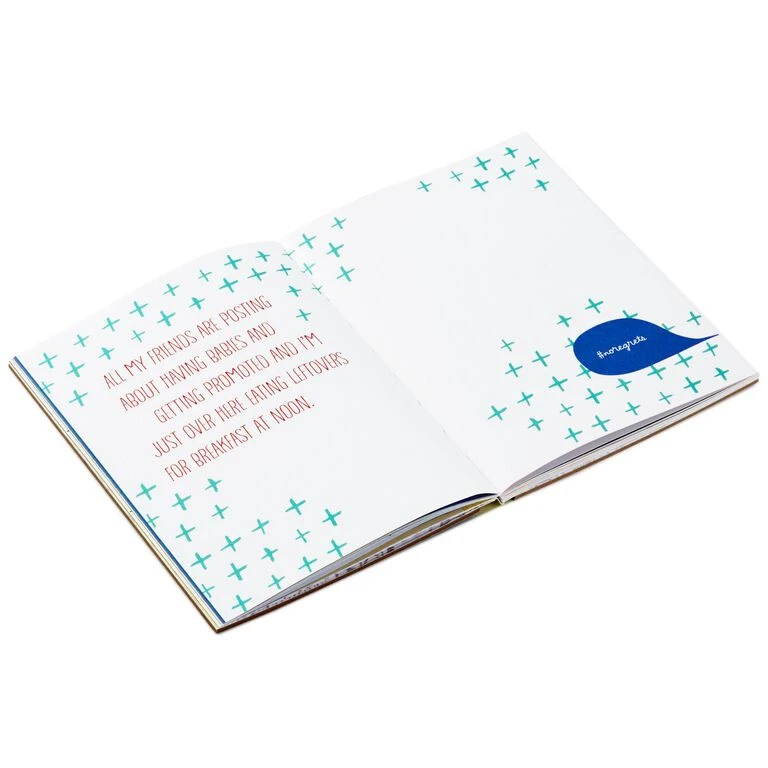 ALL MY FRIENDS ARE POSTING
ABOUT HAVING BABIES AND
GETTING PROMOTED AND I'M
JUST OVER HERE EATING LEFTOVERS
FOR BREAKFAST AT NOON.
#noregrets